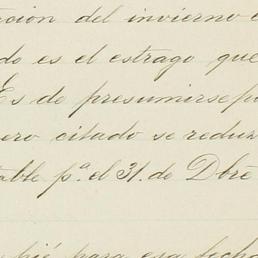 ción del invierno e
do es el estrago que
Es de presumirse po
ero citado se reduz
table pª. el 31. de Dbre
pié para esa fecha